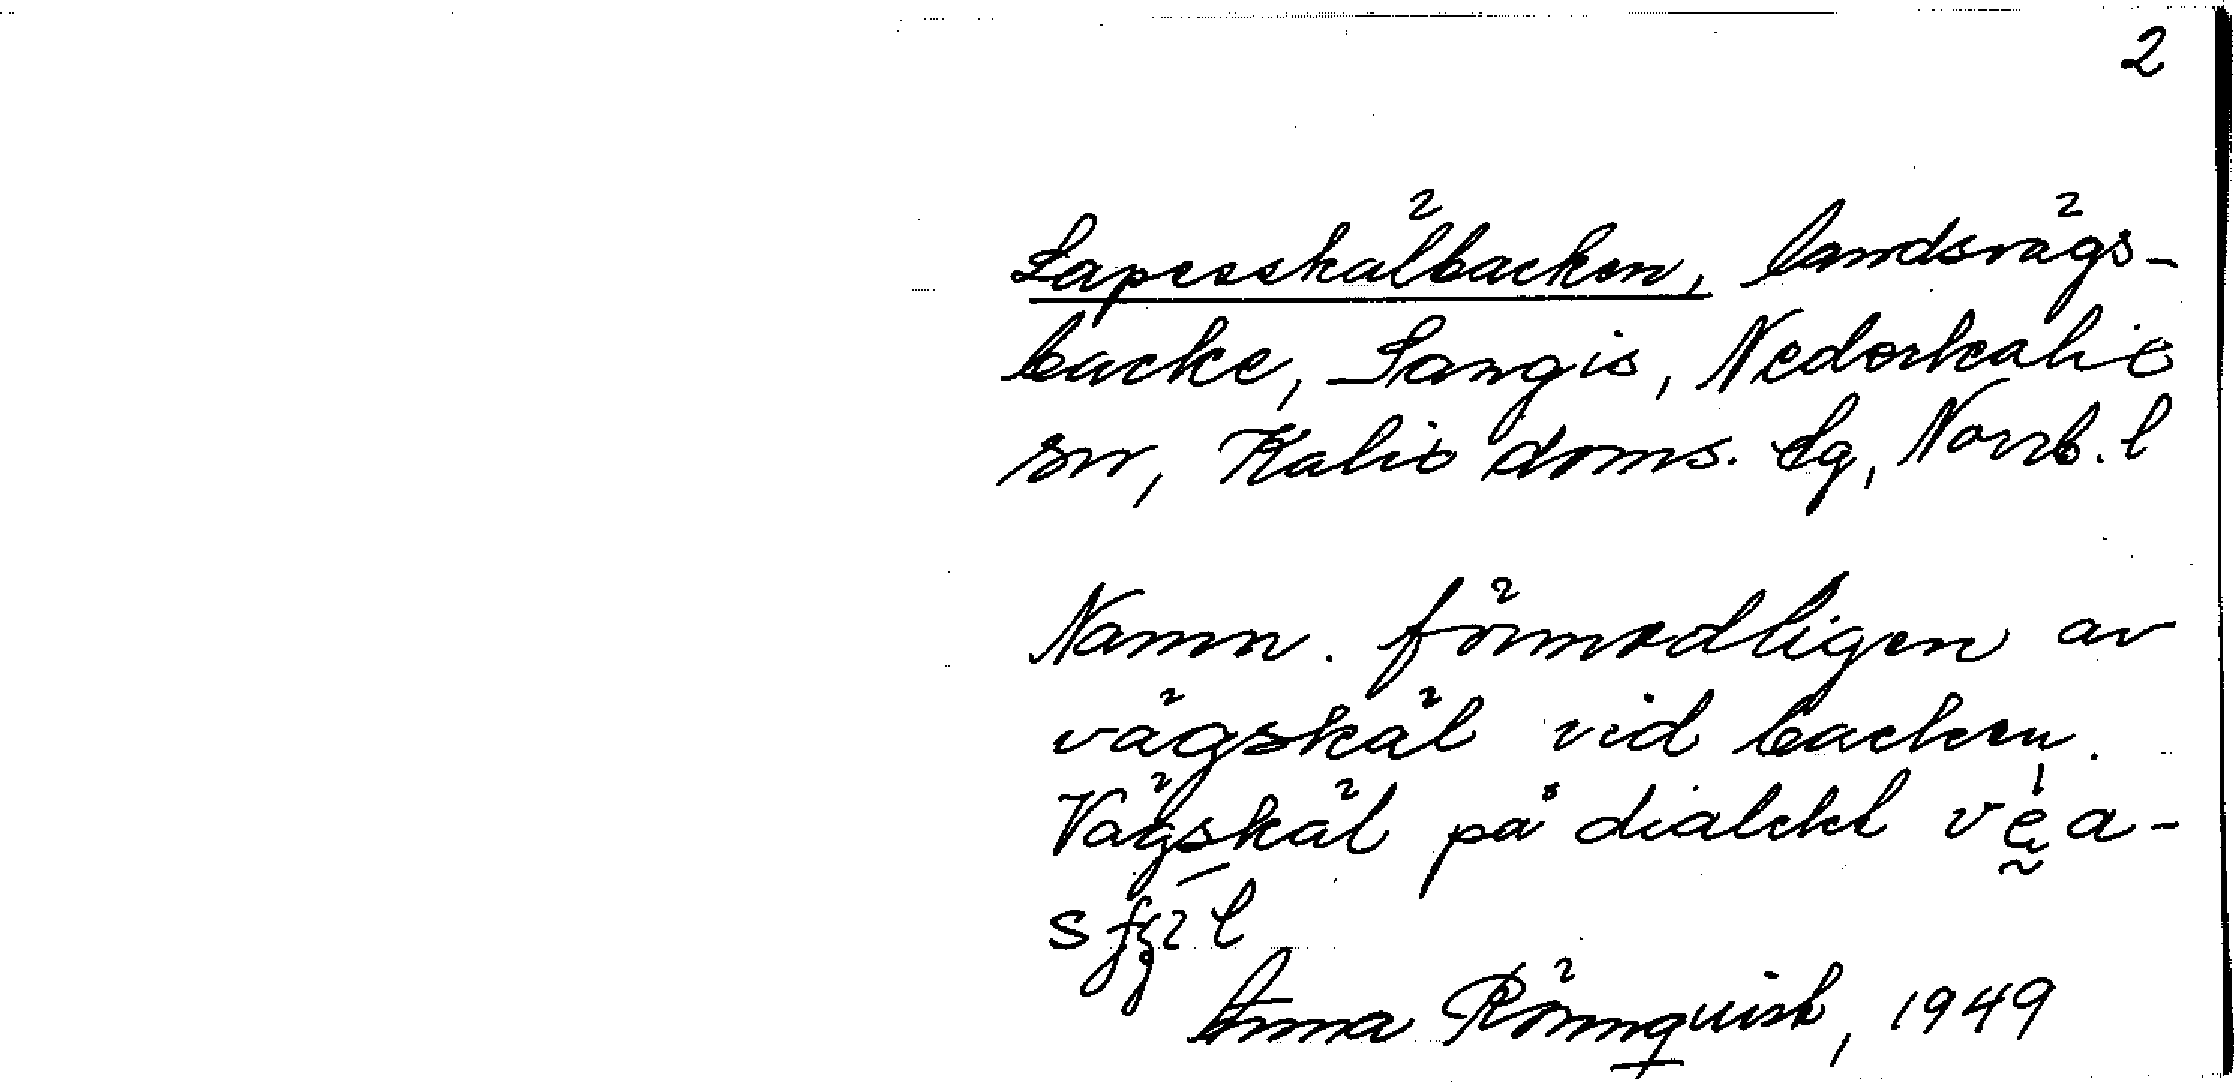 2
Lapesskälbacken, landsvägs-
backe, Sangis, Nederkalix
sn, Kalix doms. lg, Norrb. l
Namn. förmodligen av
vägskäl vid backen.
Vägskäl på dialekt
Anna Rönnquist, 1949